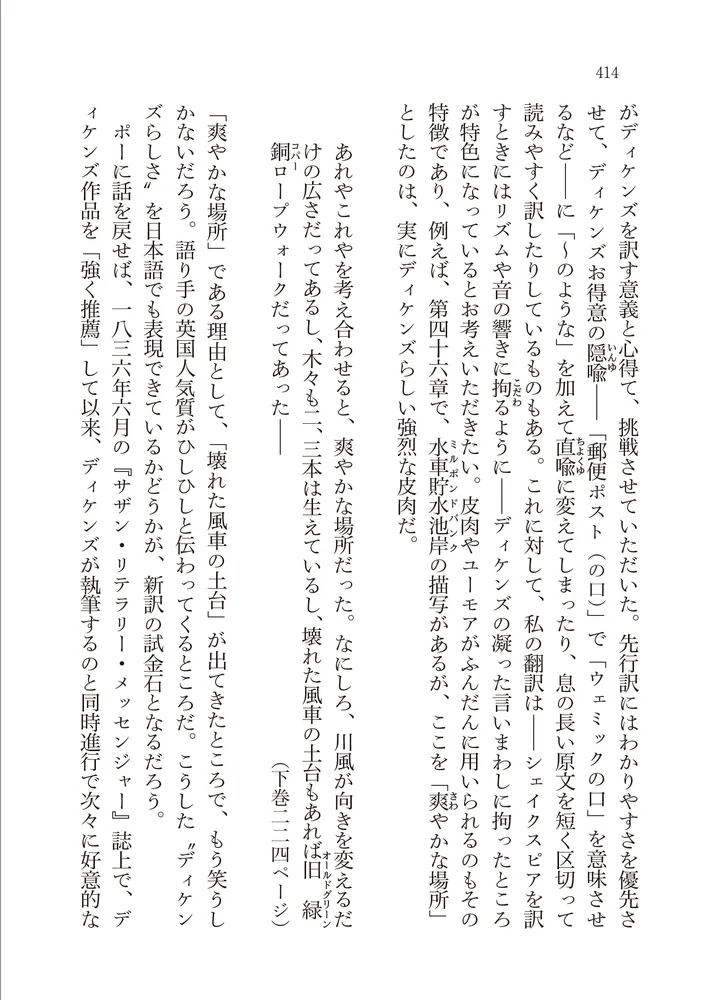 414
がディケンズを訳す意義と心得て、挑戦させていただいた。先行訳にはわかりやすさを優先さ
せて、ディケンズお得意の隠喩――「郵便ポスト(の口)」で「ウェミックの口」を意味させ
るなど――に「~のような」を加えて直喩に変えてしまったり、息の長い原文を短く区切って
読みやすく訳したりしているものもある。これに対して、私の翻訳は――シェイクスピアを訳
すときにはリズムや音の響きに拘るように――ディケンズの凝った言いまわしに拘ったところ
が特色になっているとお考えいただきたい。皮肉やユーモアがふんだんに用いられるのもその
特徴であり、例えば、第四十六章で、水車貯水池岸の描写があるが、ここを「爽やかな場所」
としたのは、実にディケンズらしい強烈な皮肉だ。
あれやこれやを考え合わせると、爽やかな場所だった。なにしろ、川風が向きを変えるだ
けの広さだってあるし、木々も二、三本は生えているし、壊れた風車の土台もあれば旧緑
銅ロープウォークだってあった――
(下巻二二四ページ)
「爽やかな場所」である理由として、「壊れた風車の土台」が出てきたところで、もう笑うし
かないだろう。語り手の英国人気質がひしひしと伝わってくるところだ。こうした〝ディケン
ズらしさ〟を日本語でも表現できているかどうかが、新訳の試金石となるだろう。
ポーに話を戻せば、一八三六年六月の『サザン・リテラリー・メッセンジャー』誌上で、デ
ィケンズ作品を「強く推薦」して以来、ディケンズが執筆するのと同時進行で次々に好意的な
いんゆ
ちょくゆ
こだわ
ミルポンドバンク
さわ
オールドグリーン
コパー